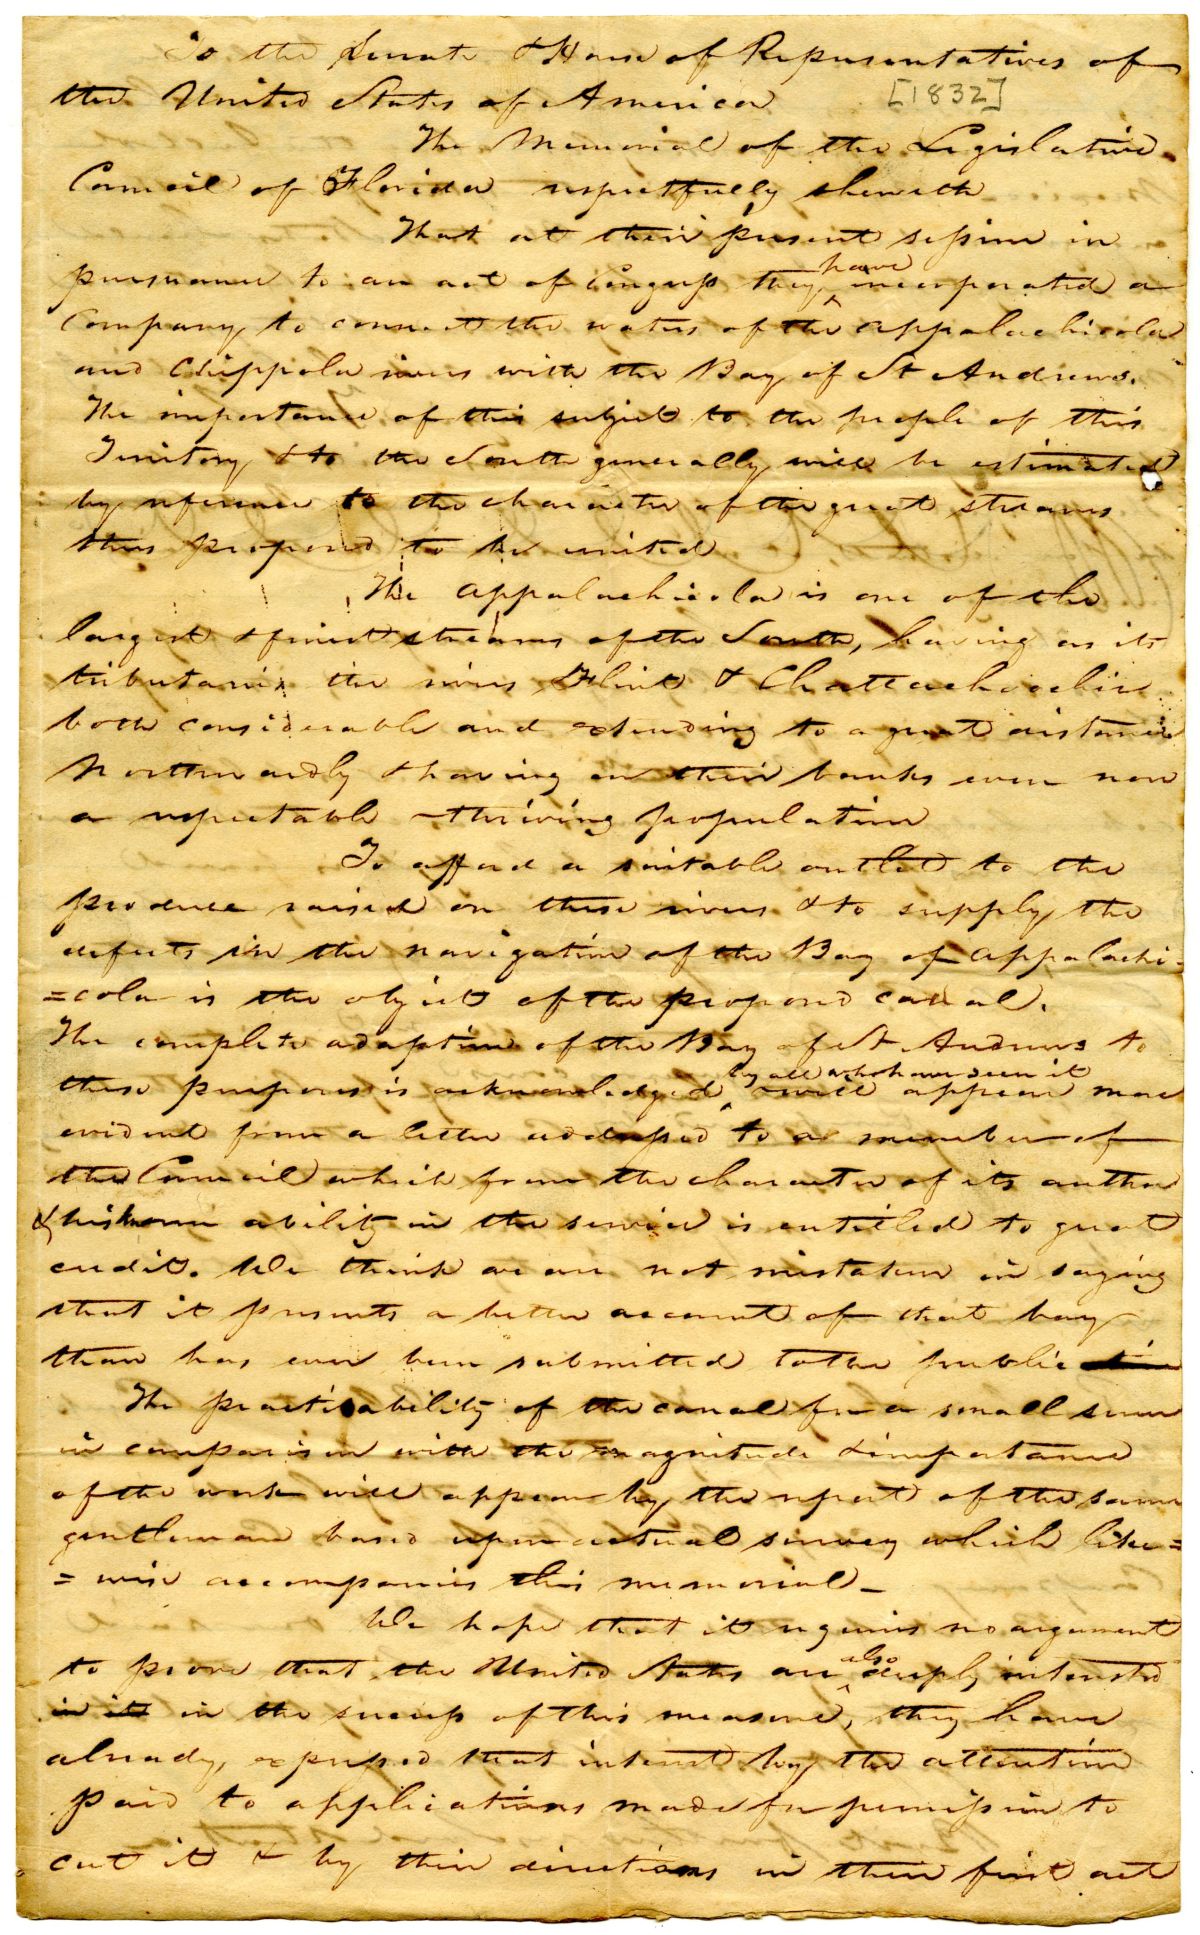 To the Senate & House of Representatives of
the United States of America [1832]
The Memorial of the Legislative
Council of Florida respectfully sheweth
That at their present session in
pursuance to an act of Congress they have incorporated a
Company, to connect the waters of the Appalachicola
and Chippola rivers with the Bay of St Andrews.
The importance of this subject to the people of this
Territory & to the South generally will be estimated
by reference to the character of the great streams
thus proposed to be united
The Appalachicola is one of the
largest & finest streams of the South, having as its
tributaries the rivers Flint & Chattachoochie
both considerable and extending to a great distance
Northwardly & having on their banks even now
a respectable thriving population
To afford a suitable outlet to the
produce raised on these rivers & to supply the
defects in the navigation of the Bay of Appalachi-
=cola is the object of the proposed canal.
The complete adaption of the Bay of St Andrews to
these purposes is acknowledged by all who have seen it & will appear more
evident from a letter addressed to a member of
the Council which from the character of its author
& his known ability in the service is entitled to great
credit. We think we are not mistaken in saying
that it presents a better account of that bay
than has ever been submitted to the public
The practicability of the canal for a small sum
in comparison with the magnitude & importance
of the work will appear by the report of the same
gentleman based upon actual survey which like=
=wise accompanies this memorial_
We hope that it requires no argument
to prove that the United States are also deeply interested
in it in the success of this measure, they have
already, expressed that interest by the attention
paid to applications made for permission to
cut it & by their directions in their first act